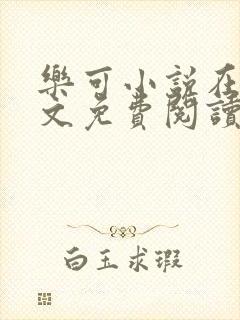 樂可小說在
文免費閱讀
白玉求瑕